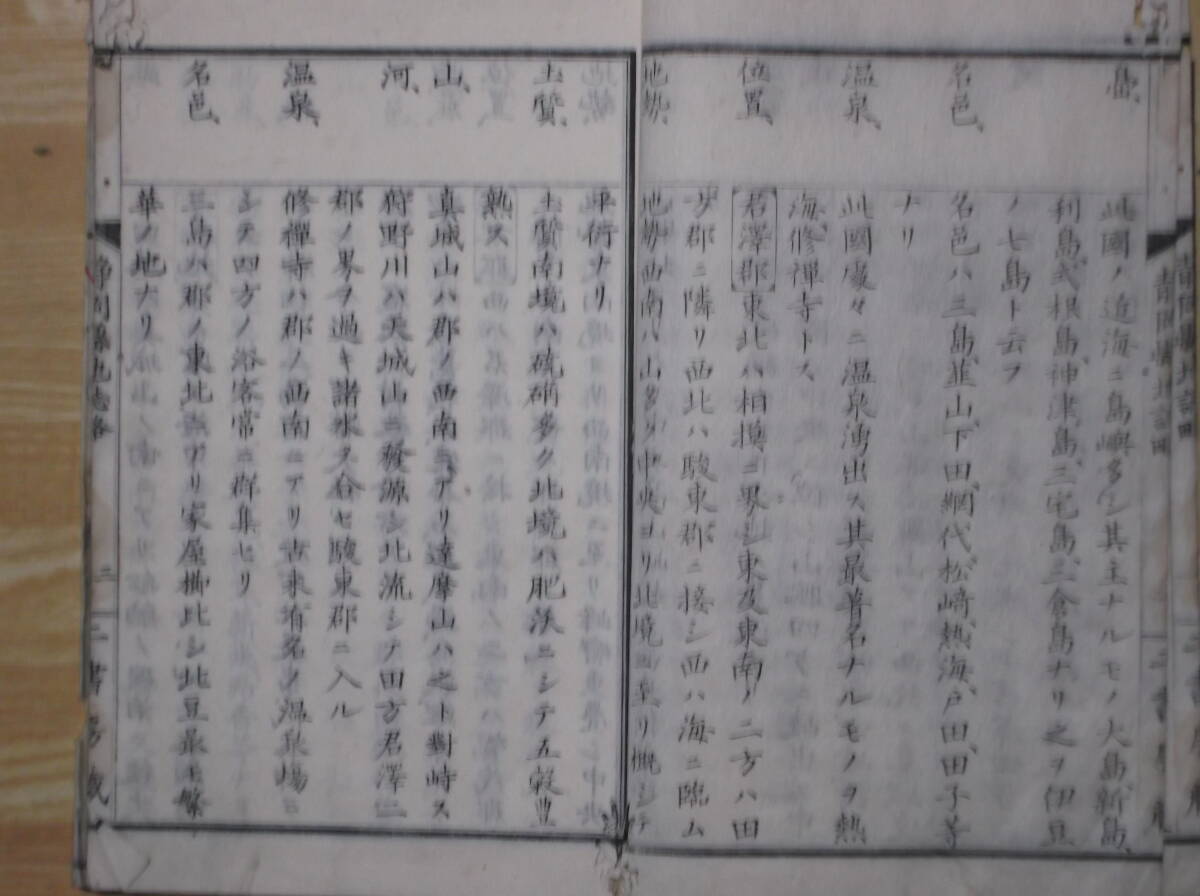 島、
此國ノ近海ニ島嶼多シ其主ナルモノ大島、新島、
利島、式根島、神津島、三宅島、三倉島ナリ之ヲ伊豆
ノ七島ト云フ
名邑、
名邑ハ三島、韮山、下田、網代、松崎、熱海、戸田、田子等
ナリ
温泉、
此國處々ニ温泉湧出ス其最著名ナルモノヲ熱
海、修禪寺トス
位置、
君澤郡 東北ハ相摸ニ界シ東及東南ノ二方ハ田
方郡ニ隣リ西北ハ駿東郡ニ接シ西ハ海ニ臨ム
地勢、
地勢西南ハ山多ク中央ヨリ北境ニ至リ慨シテ
平衍ナリ
土質、
土質南境ハ磽确多ク北境ハ肥沃ニシテ五穀豊
熟ス
山、
真城山ハ郡ノ西南ニアリ達摩山ハ之ト對峙ス
河、
狩野川ハ天城山ニ發源シ北流シテ田方君澤二
郡ノ界ヲ過キ諸水ヲ合セ駿東郡ニ入ル
温泉、
修禪寺ハ郡ノ西南ニアリ古來有名ノ温泉場ニ
シテ四方ノ浴客常ニ群集セリ
名邑、
三島ハ郡ノ東北ニアリ家屋櫛比シ北豆最モ繁
華ノ地ナリ
静岡縣地誌略
三
二書房藏